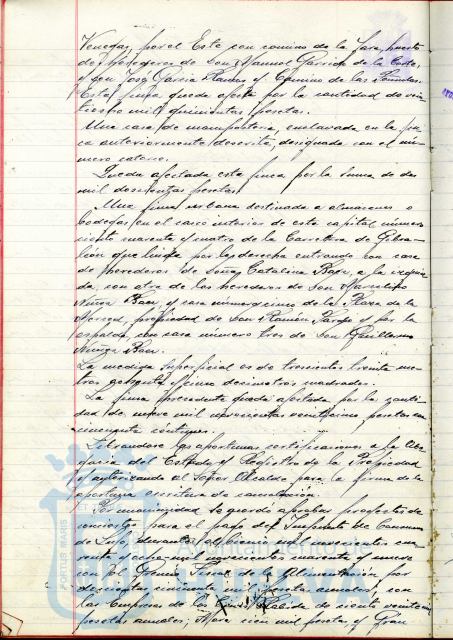 Venegas, por el Este con camino de la Jara, huerto
de herederos de Don Manuel Garrido de la Corte,
y Don José Garcia Ramos y Camino de las
Esta finca queda afecta por la cantidad de vein-
ticuatro mil quinientas pesetas.
Una casa de mampostería, enclavada en la fin-
ca anteriormente descrita, designada con el nú-
mero catorce.
Queda afectada esta finca por la suma de dos
mil doscientas pesetas.
Una finca urbana destinada a almacenes o
bodegas en el casco interior de esta capital número
ciento cuarenta y cuatro de la Carretera de Gibra-
león que linda por la derecha entrando con casa
de herederos de Doña Catalina Báez, a la izquier-
da, con otra de los herederos de Don Marcelino
Núñez Báez, y casa número cinco de la Plaza de la
Merced, propiedad de Don Ramón y por la
espalda, con casa número tres de Don Guillermo
Núñez Báez.
La medida superficial es de trescientos treinta me-
tros y cinco decímetros cuadrados.
La finca precedente queda afectada por la canti-
dad de nueve mil veinticinco pesetas con
cincuenta céntimos.
Librándose las oportunas certificaciones a la Abo-
gacía del Estado y Registro de la Propiedad
y autorizando al Señor Alcalde para la firma de la
oportuna escritura de cancelación.
Por unanimidad se acordó aprobar proyectos de
conciertos para el pago del Impuesto de Consumos
de Lujo, durante el bienio mil novecientos cua-
renta y ocho y mil novecientos cuarenta y nueve
con el Gremio Fiscal de la Alimentación por
doscientas cincuenta mil pesetas anuales, con
las Empresas de los Rábida de ciento veinte mil
pesetas anuales; Mora cien mil pesetas y Gran
PORTUS MARIS
Ayuntamiento de
HUELVA